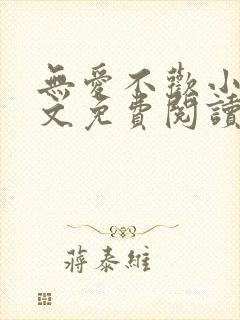 無愛不歡小
文免費閱讀
蔣泰維